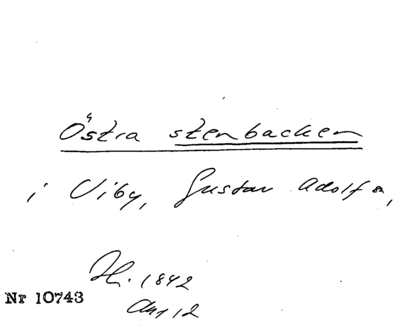 Östra stenbacken
i Viby, Gustav Adolf s,
H. 1842
Nr 10743